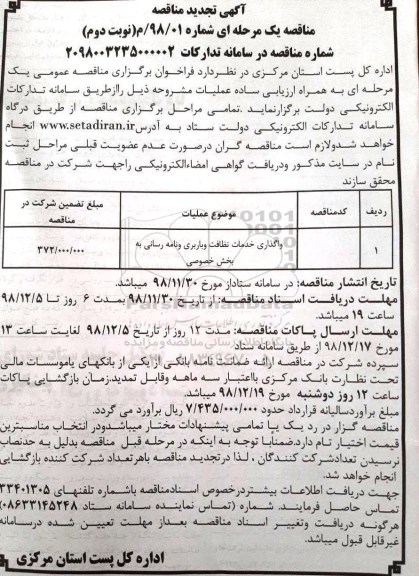 آگهی تجدید مناقصه
مناقصه یک مرحله ای شماره ۹۸/۰۱/م(نوبت دوم)
شماره مناقصه در سامانه تدارکات ۲۰۹۸۰۰۳۲۳۵۰۰۰۰۰۲
اداره کل پست استان مرکزی در نظردارد فراخوان برگزاری مناقصه عمومی یک
مرحله ای به همراه ارزیابی ساده عملیات مشروحه ذیل راازطریق سامانه تدارکات
الکترونیکی دولت برگزارنماید .تمامی مراحل برگزاری مناقصه از طریق درگاه
سامانه تدارکات الکترونیکی دولت ستاد به آدرسwww.setadiran.ir انجام
خواهد شدولازم است مناقصه گران درصورت عدم عضویت قبلی مراحل ثبت
نام در سایت مذکور ودریافت گواهی امضاءالکترونیکی راجهت شرکت در مناقصه
محقق سازند
ردیف کدمناقصه موضوع عملیات مبلغ تضمین شرکت در مناقصه
۱ واگذاری خدمات نظافت وباربری ونامه رسانی به بخش خصوصی ۳۷۲/۰۰۰/۰۰۰
تاریخ انتشار مناقصه: در سامانه ستاداز مورخ ۹۸/۱۱/۳۰ میباشد.
مهلت دریافت اسناد مناقصه: از تاریخ ۹۸/۱۱/۳۰ بمدت ۶ روز تا ۹۸/۱۲/۵
ساعت ۱۹ میباشد.
مهلت ارسال پاکات مناقصه: مدت ۱۲ روز از تاریخ ۹۸/۱۲/۵ لغایت ساعت ۱۳
مورخ ۹۸/۱۲/۱۷ از طریق سامانه ستاد
سپرده شرکت در مناقصه ارائه ضمانت نامه بانکی ازیکی از بانکهای یاموسسات مالی
تحت نظارت بانک مرکزی بااعتبار سه ماهه وقابل تمدید.زمان بازگشایی پاکات
ساعت ۱۲ روز دوشنبه مورخ ۹۸/۱۲/۱۹ میباشد.
مبلغ برآوردسالیانه قرارداد حدود ۷/۴۳۵/۰۰۰/۰۰۰ ریال برآورد می گردد.
مناقصه گزار در رد یک یا تمامی پیشنهادات مختار میباشدودر انتخاب مناسبترین
قیمت اختیار تام دارد.ضمنابا توجه به اینکه در مرحله قبل مناقصه بدلیل به حدنصاب
نرسیدن تعدادشرکت کنندگان ، لذا درتجدید مناقصه باهرتعداد شرکت کننده بازگشایی
انجام خواهد شد.
جهت دریافت اطلاعات بیشتردرخصوص اسنادمناقصه باشماره تلفنهای ۳۳۴۰۱۳۰۵
تماس حاصل فرمایند. شماره (تماس نماینده سامانه ستاد ۰۸۶۳۳۱۴۵۲۴۸)
هرگونه دریافت وتغییر اسناد مناقصه بعداز مهلت تعیین شده درسامانه
غیرقابل قبول میباشد.
اداره کل پست استان مرکزی